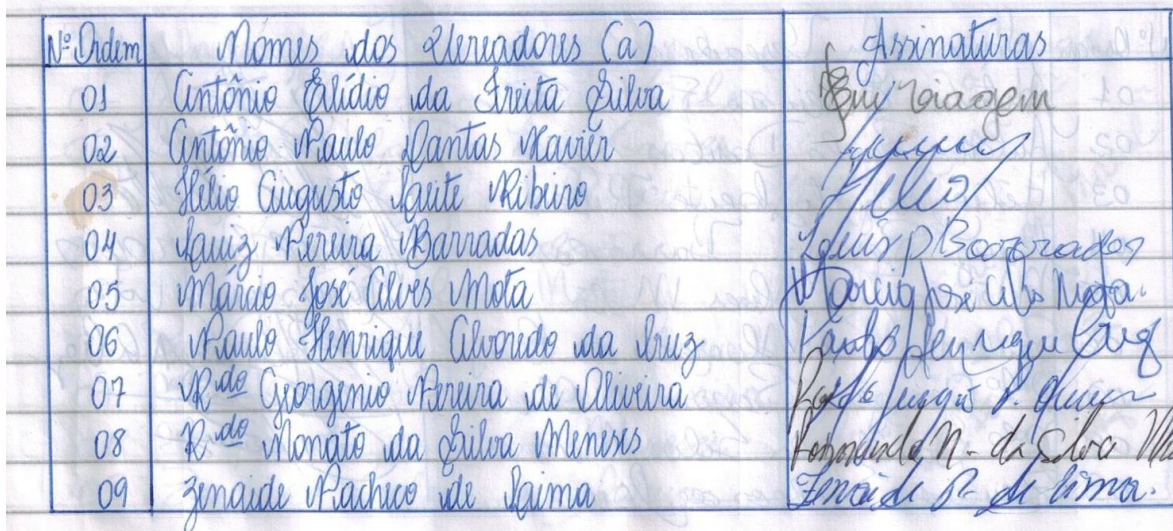 Nº Ordem Nomes dos Vereadores (a) Assinaturas
01 Antônio Elídio da Freita Silva Em viagem
02 Antônio Paulo Dantas Xavier
03 Hélio Augusto Leite Ribiro Hélio
04 Luiz Pereira Barradas Luis P Barrados
05 Márcio José Alves Mota Marcio José Alves Mota.
06 Paulo Henrique Alvoredo da Cruz Paulo Henrique Cruz
07 Rdo Georgenio Pereira de Oliveira
08 Rdo Nonato da Silva Meneses Raimundo N. da Silva
09 Zenaide Pacheco de Lima Zenaide P. de Lima.